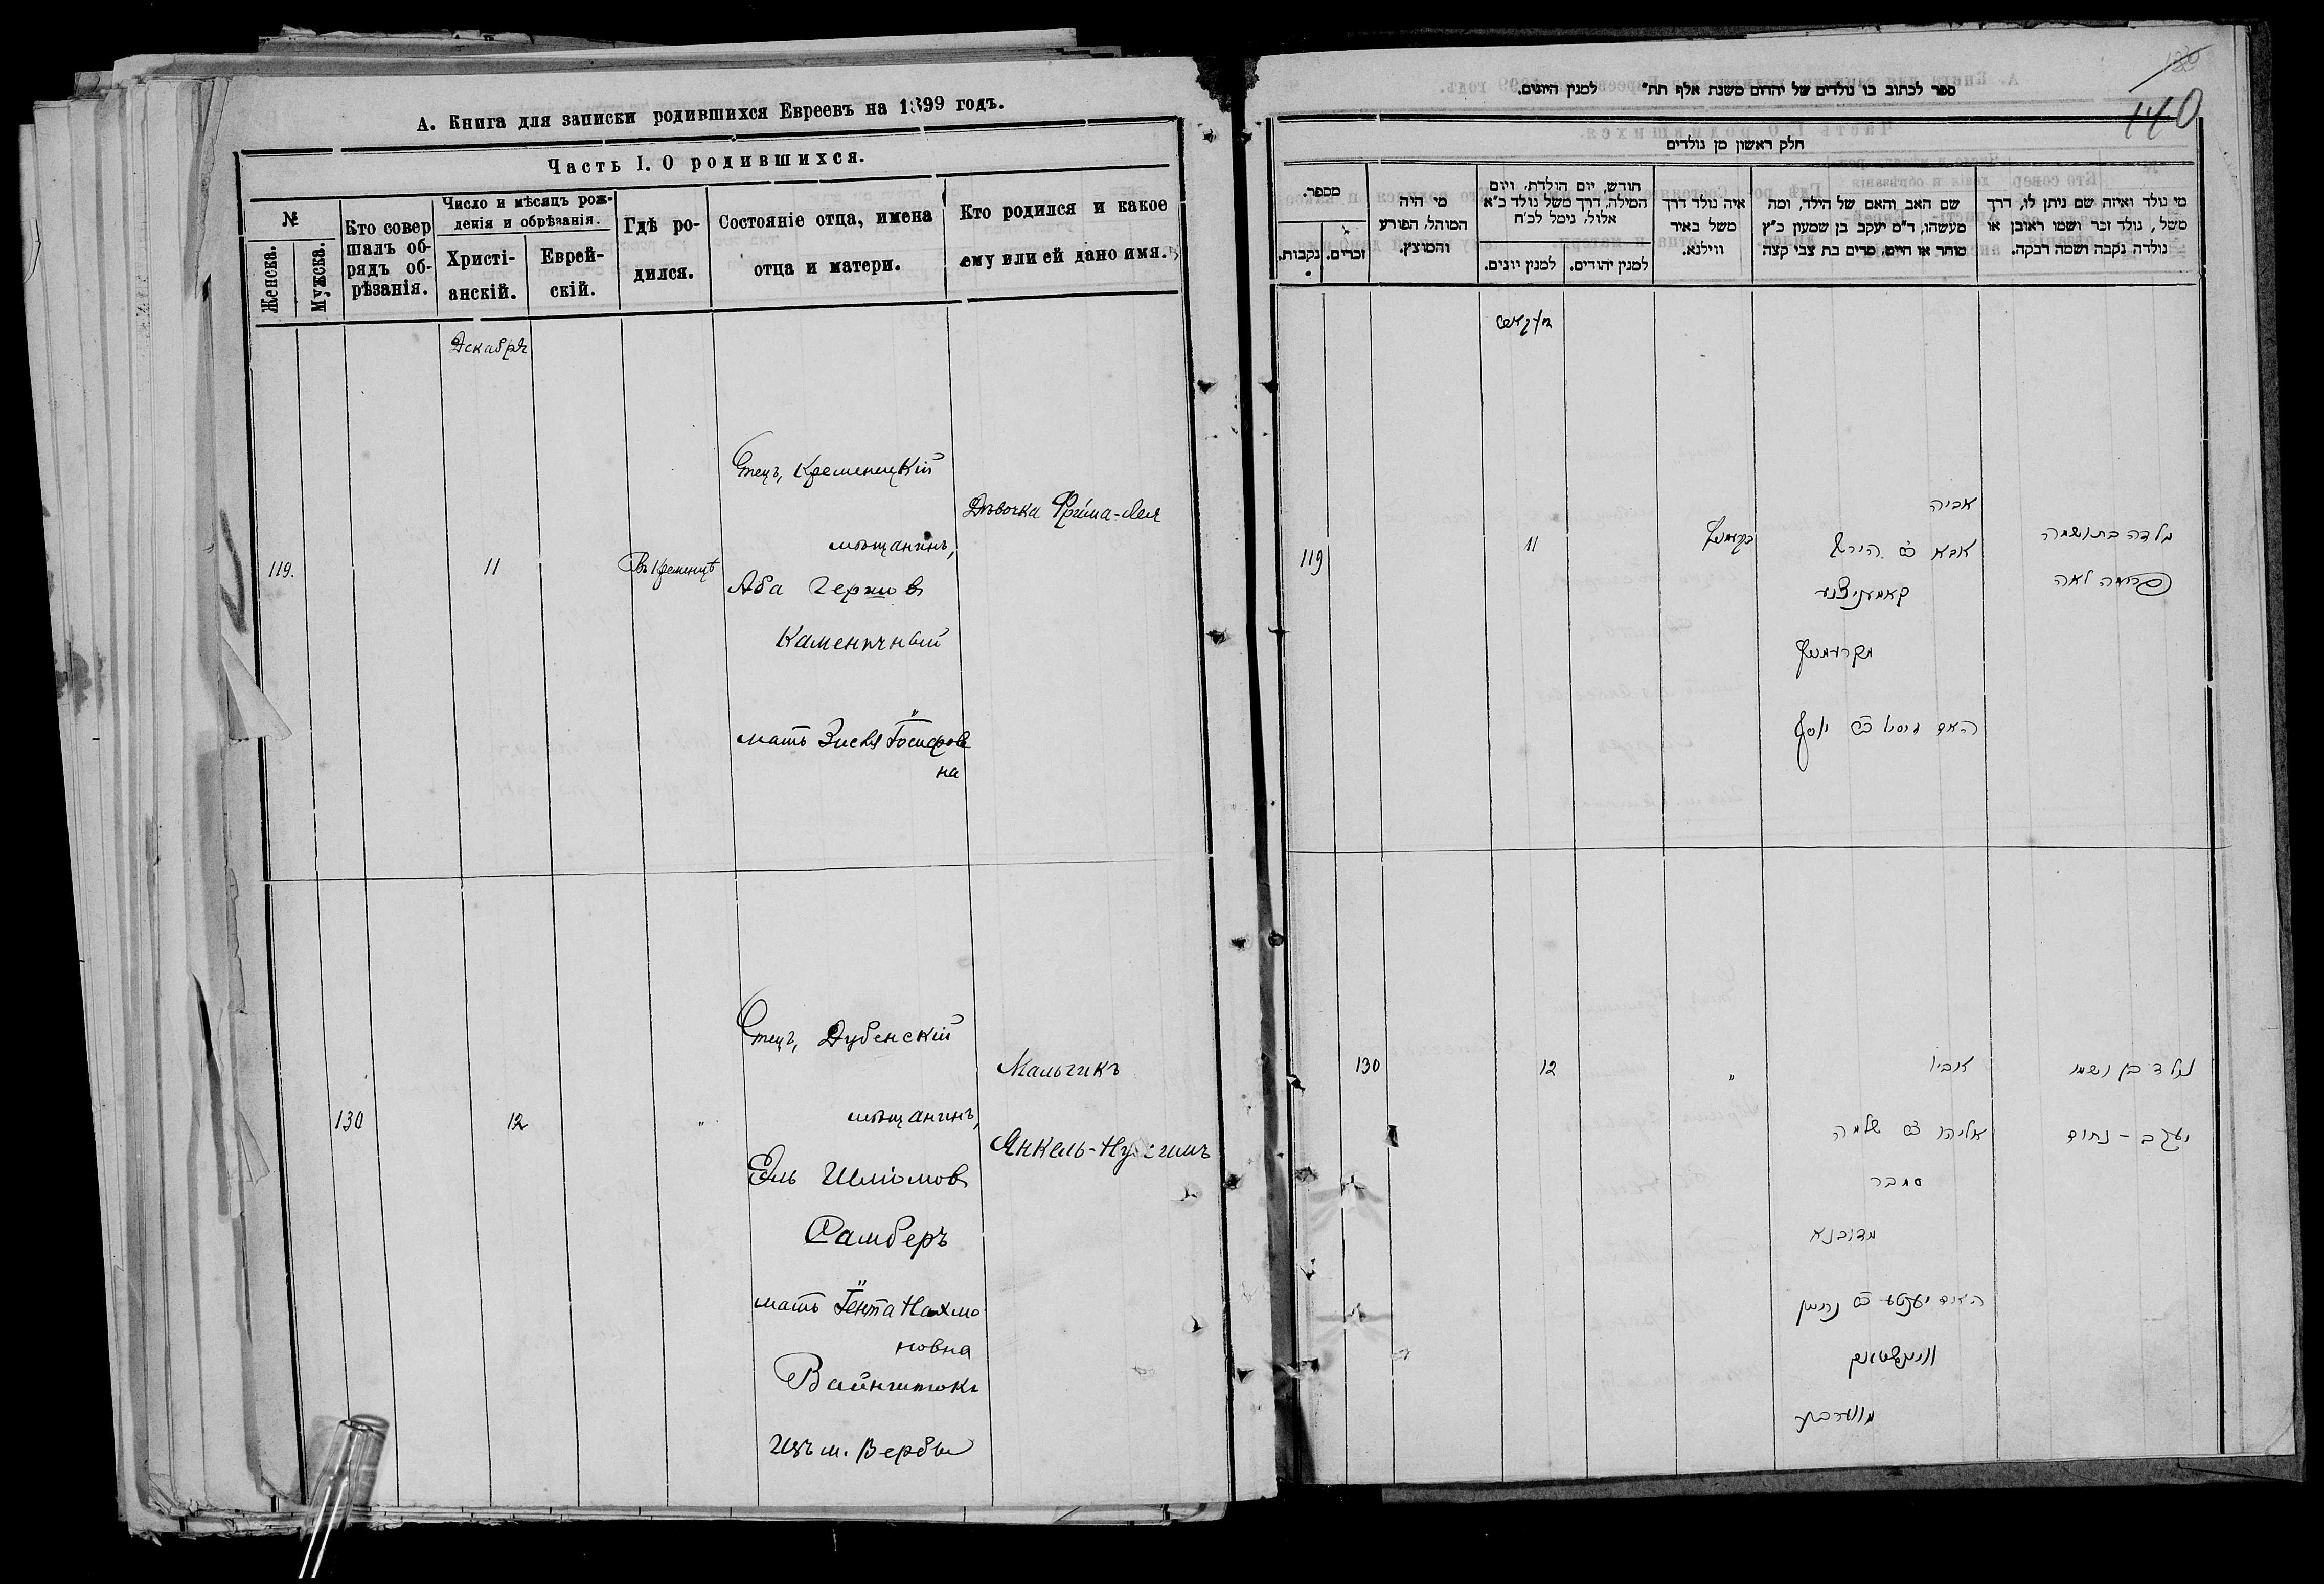 А. Книга для записки родившихся Евреевъ на 1899 годъ.
Часть I. О родившихся.
№
Женска.
Мужска.
Кто совер
шалъ об-
рядъ об-
рѣзанія.
Число и мѣсяцъ рож-
денія и обрѣзанія.
Христі-
анскій.
Еврей-
скій.
Гдѣ ро-
дился.
Состояніе отца, имена
отца и матери.
Кто родился и какое
ему или ей дано имя.
Декабря
119.
11
Въ Кременцѣ
Отецъ, Кременецкій
мѣщанинъ,
Аба Гершов
Каменичный
мать Зисля Іосифов
на
Дѣвочка Фрима-Лея
130
12
"
Отецъ, Дубенскій
мѣщанинъ,
Ель Шліомов
Самберъ
мать Іента Нахмо
новна
Вайнштокъ
Изъ м. Вербы
Мальчикъ
Янкель-
ספר לכתוב בו נולדים של יהודים משנת אלף תת" למנין היונים.
140
חלק ראשון מן נולדים
מי נולד ואיזה שם ניתן לו, דרך
משל, נולד זכר ושמו ראובן או
נולדה נקבה ושמה רבקה.
שם האב והאם של הילד, ומה
מעשהו, ד"מ יעקב בן שמעון כ"ץ
סוחר או חייט, מרים בת צבי קצה
איה נולד דרך
משל באיר
ווילנא.
חודש, יום הולדת, ויום
המילה, דרך משל נולד כ"א
אלול, נימל לכ"ח
למנין יהודים.
למנין יונים.
מי היה
המוהל, הפורע
והמוצץ.
מספר.
זכרים.
נקבות.
דעקאבר
119
11
בקרעמניץ
אביה
אבא בם הירש
קאמעניצנע
מקרעמניץ
האם זיסל בת יוסף
נולדה בת ושמה
פרימה לאה
130
12
"
אביו
אליהו בם שלמה
סמבר
מדובנא
האם יענטע בת נחמן
וויינשטאק
מווערבע
נולד בן ושמו
יעקב - נחום